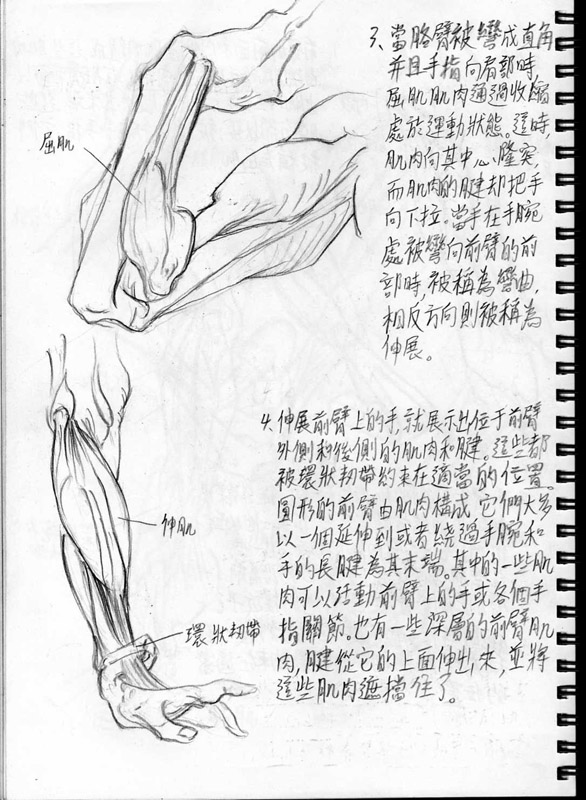 3、當胳臂被彎成直角
并且手指向肩部時
屈肌肌肉通過收縮
處於運動狀態。這時,
肌肉向其中心隆突,
而肌肉的腱却把手
向下拉。當手在手腕
處被彎向前臂的前
部時,被稱為彎曲,
相反方向則被稱為
伸展。
屈肌
4、伸展前臂上的手,就展示出位于前臂
外側和後側的肌肉和腱。這些都
被環狀韧帶約束在適當的位置。
圓形的前臂由肌肉構成 它們大多
以一個延伸到或者繞過手腕和
手的長腱為其末端。其中的一些肌
肉可以活動前臂上的手或各個手
指關節。也有一些深層的前臂肌
肉,腱從它的上面伸出來,並將
這些肌肉遮擋住了。
伸肌
環狀韧帶